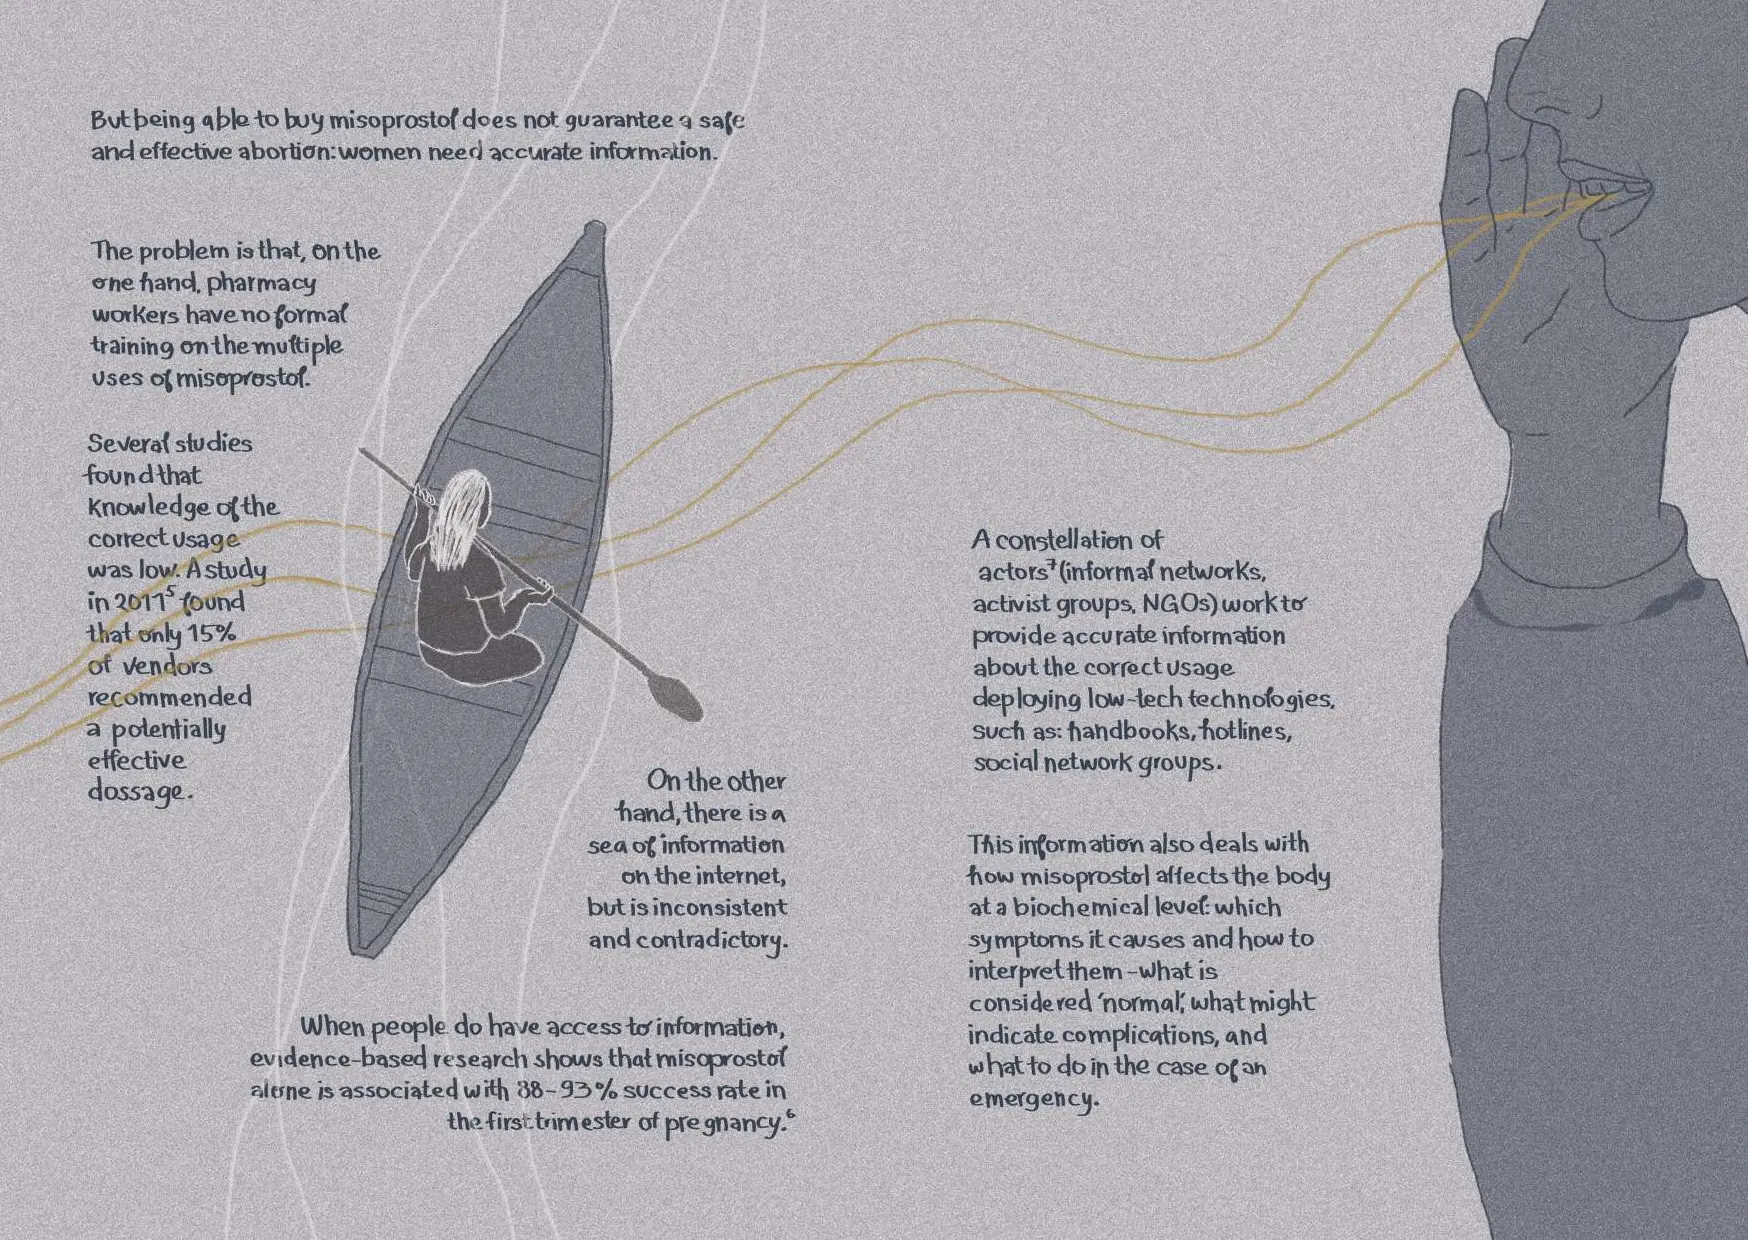 But being able to buy misoprostol does not guarantee a safe
and effective abortion: women need accurate information.
The problem is that, on the
one hand, pharmacy
workers have no formal
training on the multiple
uses of misoprostol.
Several studies
found that
knowledge of the
correct usage
was low. A study
in 2011⁵ found
that only 15%
of vendors
recommended
a potentially
effective
dossage.
On the other
hand, there is a
sea of information
on the internet,
but is inconsistent
and contradictory.
When people do have access to information,
evidence-based research shows that misoprostol
alone is associated with 88-93% success rate in
the first trimester of pregnancy.⁶
A constellation of
actors⁷ (informal networks,
activist groups, NGOs) work to
provide accurate information
about the correct usage
deploying low-tech technologies,
such as: handbooks, hotlines,
social network groups.
This information also deals with
how misoprostol affects the body
at a biochemical level: which
symptoms it causes and how to
interpret them - what is
considered 'normal', what might
indicate complications, and
what to do in the case of an
emergency.